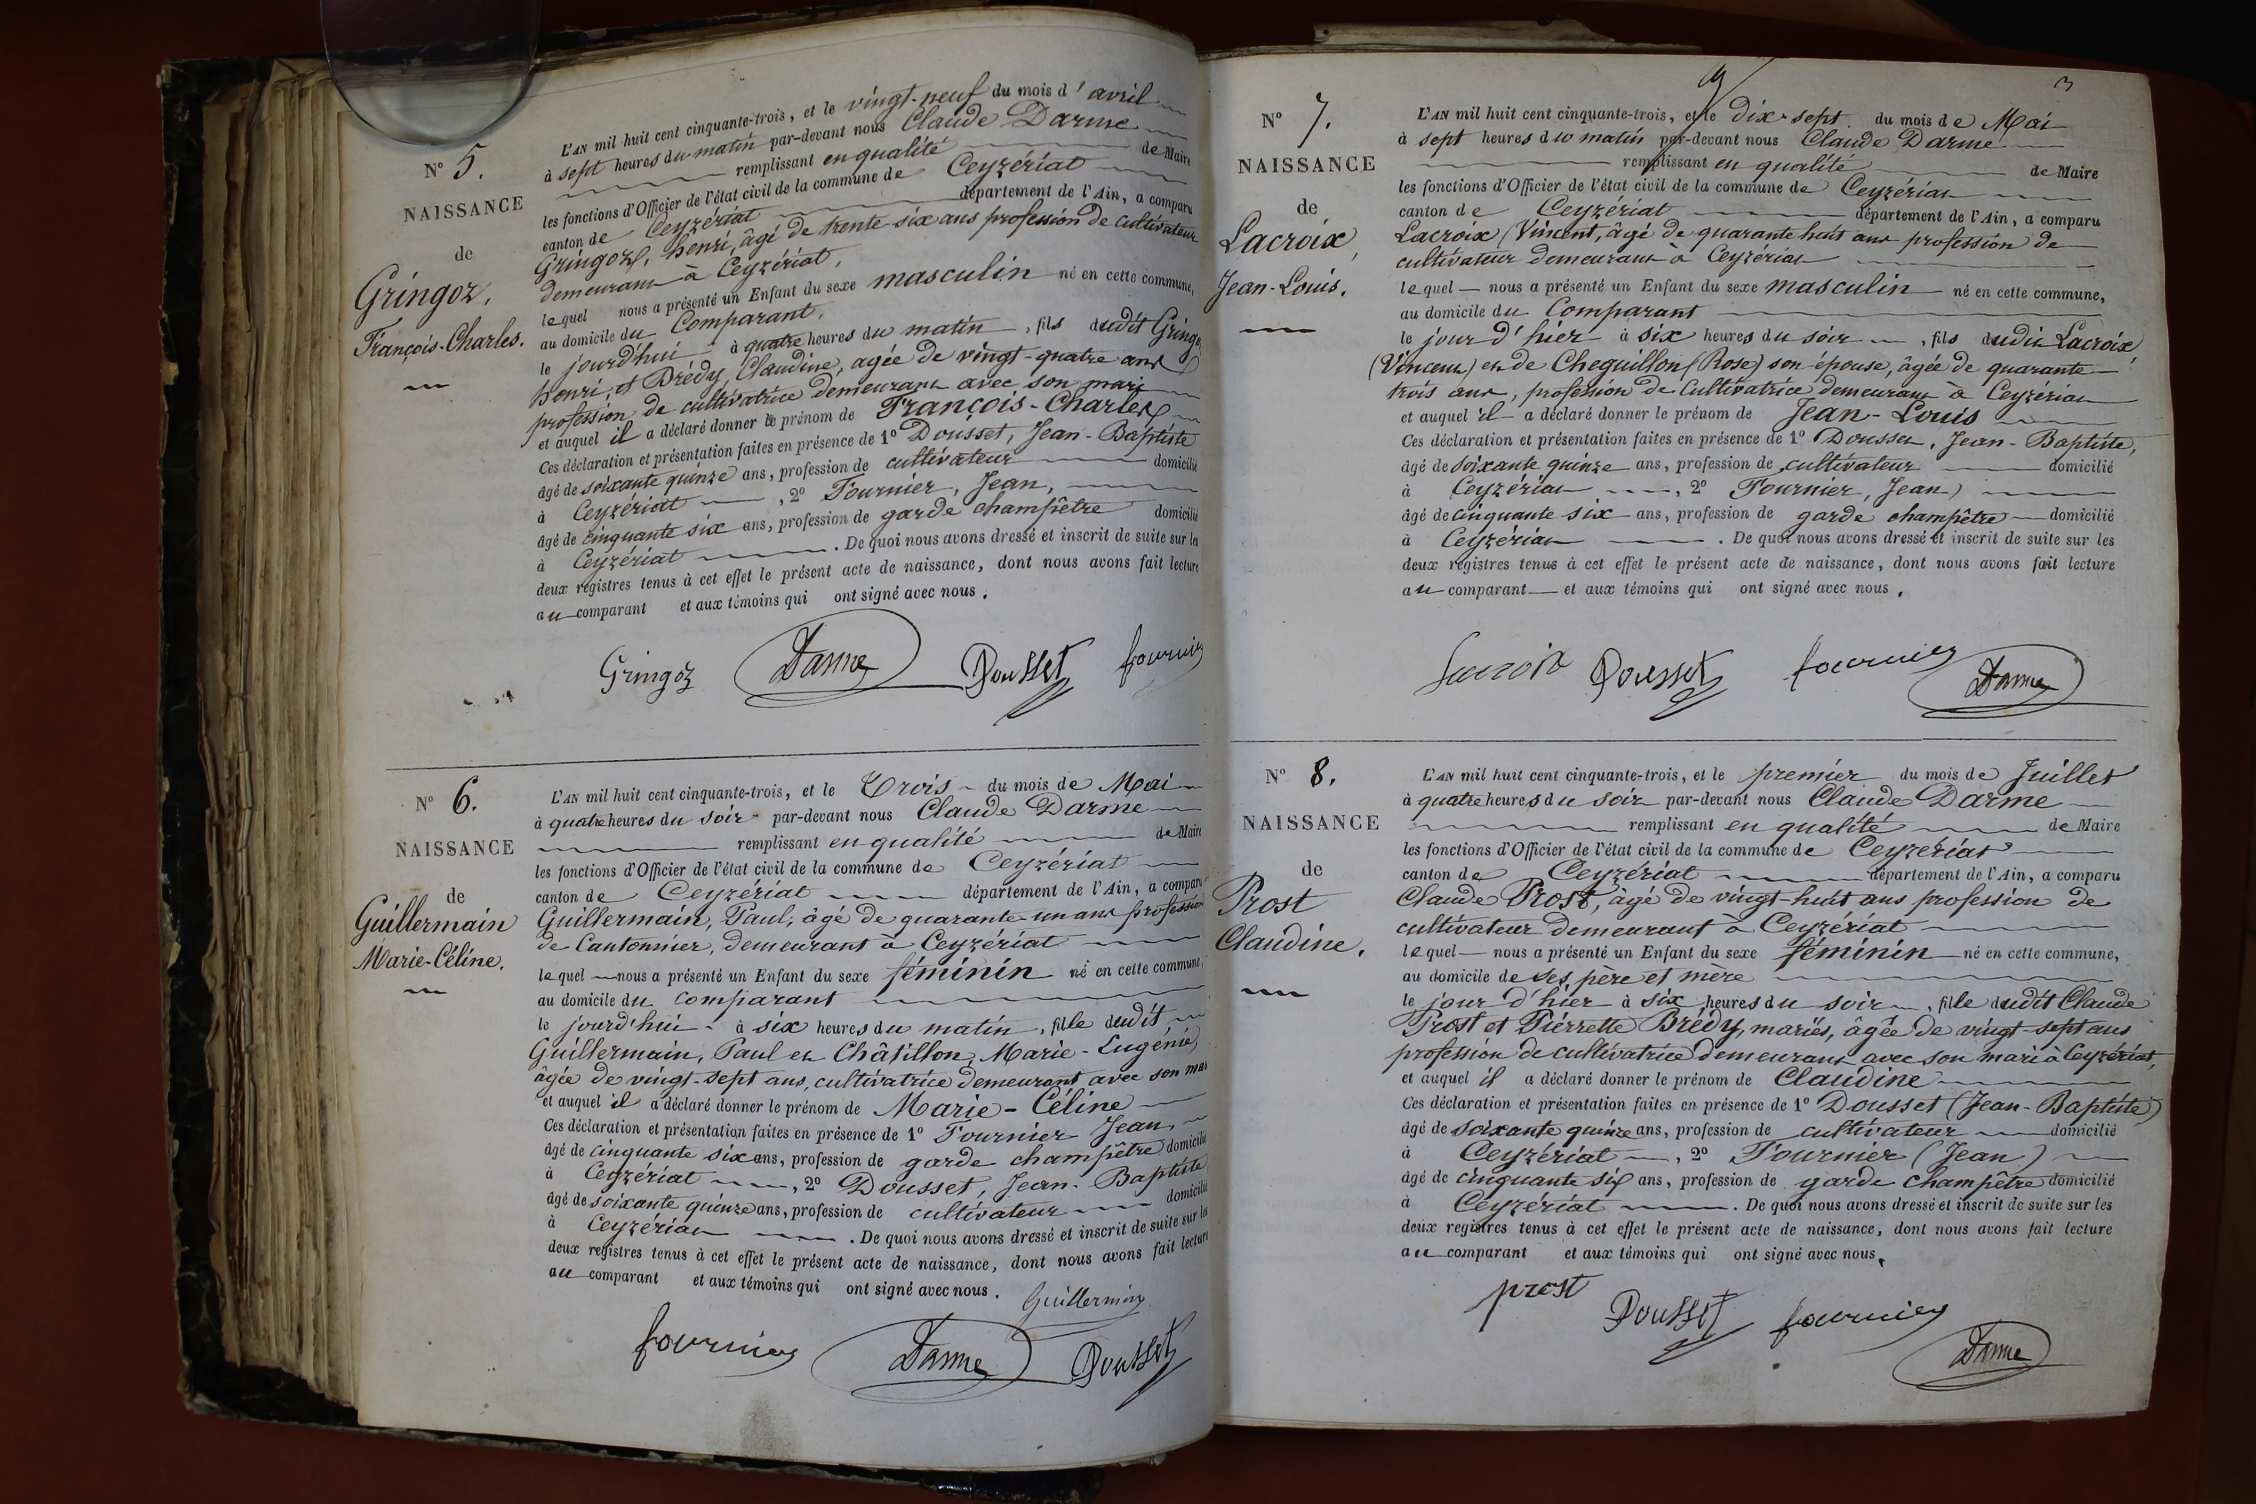 N° 5.
NAISSANCE
de
Gringoz,
François-Charles.
L'AN mil huit cent cinquante-trois, et le vingt-neuf du mois d'avril
à sept heures du matin par-devant nous Claude Darme
remplissant en qualité de Maire
les fonctions d'Officier de l'état civil de la commune de Ceyzériat
canton de Ceyzériat département de l'Ain, a comparu
Gringoz, henri, âgé de trente-six ans profession de cultivateur
demeurant à Ceyzériat,
lequel nous a présenté un Enfant du sexe masculin né en cette commune,
au domicile du Comparant,
le jourd'hui à quatre heures du matin, fils dudit Gringoz
henri, et Brédy, Claudine, agée de vingt-quatre ans
profession de cultivatrice demeurant avec son mari
et auquel il a déclaré donner le prénom de François-Charles
Ces déclaration et présentation faites en présence de 1° Dousset, Jean-Baptiste
âgé de soixante quinze ans, profession de cultivateur domicilié
à Ceyzériat, 2° Fournier, Jean,
âgé de cinquante six ans, profession de garde champêtre domicilié
à Ceyzériat. De quoi nous avons dressé et inscrit de suite sur les
deux registres tenus à cet effet le présent acte de naissance, dont nous avons fait lecture
au comparant et aux témoins qui ont signé avec nous.
Gringoz Darme Dousset fournier
N° 6.
NAISSANCE
de
Guillermain
Marie-Céline.
L'AN mil huit cent cinquante-trois, et le Trois du mois de Mai
à quatre heures du soir par-devant nous Claude Darme
remplissant en qualité de Maire
les fonctions d'Officier de l'état civil de la commune de Ceyzériat
canton de Ceyzériat département de l'Ain, a comparu
Guillermain, Paul, âgé de quarante-un ans profession
de Cantonnier, demeurant à Ceyzériat
lequel nous a présenté un Enfant du sexe féminin né en cette commune,
au domicile du comparant
le jourd'hui à six heures du matin, fille dudit
Guillermain, Paul et Châtillon, Marie-Eugénie,
âgée de vingt-sept ans, cultivatrice demeurant avec son mari
et auquel il a déclaré donner le prénom de Marie-Céline
Ces déclaration et présentation faites en présence de 1° Fournier Jean,
âgé de cinquante six ans, profession de garde champêtre domicilié
à Ceyzériat, 2° Dousset, Jean-Baptiste
âgé de soixante quinze ans, profession de cultivateur domicilié
à Ceyzériat. De quoi nous avons dressé et inscrit de suite sur les
deux registres tenus à cet effet le présent acte de naissance, dont nous avons fait lecture
au comparant et aux témoins qui ont signé avec nous. Guillermin
fournier Darme Dousset
3
N° 7.
NAISSANCE
de
Lacroix,
Jean-Louis.
L'AN mil huit cent cinquante-trois, et le dix-sept du mois de Mai
à sept heures du matin par-devant nous Claude Darme
remplissant en qualité de Maire
les fonctions d'Officier de l'état civil de la commune de Ceyzériat
canton de Ceyzériat département de l'Ain, a comparu
Lacroix (Vincent, âgé de quarante huit ans profession de
cultivateur demeurant à Ceyzériat
lequel nous a présenté un Enfant du sexe masculin né en cette commune,
au domicile du Comparant
le jour d'hier à six heures du soir, fils dudit Lacroix,
(Vincent) et de Cheguillon (Rose) son épouse, âgée de quarante
trois ans, profession de Cultivatrice demeurant à Ceyzériat
et auquel il a déclaré donner le prénom de Jean-Louis
Ces déclaration et présentation faites en présence de 1° Dousset, Jean-Baptiste,
âgé de soixante quinze ans, profession de cultivateur domicilié
à Ceyzériat, 2° Fournier, Jean)
âgé de cinquante six ans, profession de garde champêtre domicilié
à Ceyzériat. De quoi nous avons dressé et inscrit de suite sur les
deux registres tenus à cet effet le présent acte de naissance, dont nous avons fait lecture
au comparant et aux témoins qui ont signé avec nous.
Lacroix Dousset fournier
Darme
N° 8.
NAISSANCE
de
Prost
Claudine.
L'AN mil huit cent cinquante-trois, et le premier du mois de Juillet
à quatre heures du soir par-devant nous Claude Darme
remplissant en qualité de Maire
les fonctions d'Officier de l'état civil de la commune de Ceyzériat
canton de Ceyzériat département de l'Ain, a comparu
Claude Prost, âgé de vingt-huit ans profession de
cultivateur demeurant à Ceyzériat
lequel nous a présenté un Enfant du sexe féminin né en cette commune,
au domicile de ses père et mère
le jour d'hier à six heures du soir, fille dudit Claude
Prost et Pierrette Brédy, mariés, âgée de vingt-sept ans
profession de cultivatrice demeurant avec son mari à Ceyzériat,
et auquel il a déclaré donner le prénom de Claudine
Ces déclaration et présentation faites en présence de 1° Dousset (Jean-Baptiste)
âgé de soixante quinze ans, profession de cultivateur domicilié
à Ceyzériat, 2° Fournier (Jean)
âgé de cinquante six ans, profession de garde champêtre domicilié
à Ceyzériat. De quoi nous avons dressé et inscrit de suite sur les
deux registres tenus à cet effet le présent acte de naissance, dont nous avons fait lecture
au comparant et aux témoins qui ont signé avec nous.
prost Dousset fournier
Darme